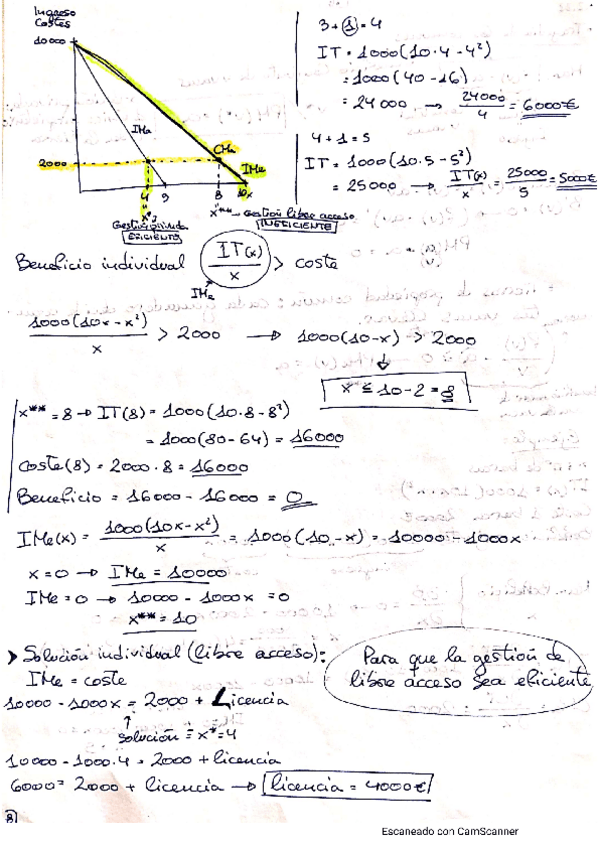 Ingreso
Costes
10000
IMa
CMa
IMe
2000
4 5 8 10 x
x* x** → Gestión libre acceso
Gestión privada INEFICIENTE
EFICIENTE
3 + 1 = 4
IT = 1000(10·4 - 4²)
= 1000(40 - 16)
= 24000 → 24000/4 = 6000€
4 + 1 = 5
IT = 1000(10·5 - 5²)
= 25000 → IT(x)/x = 25000/5 = 5000€
Beneficio individual IT(x)/x > coste
IMe
1000(10x - x²)/x > 2000 → 1000(10 - x) > 2000
x** ≤ 10 - 2 = 8
x** = 8 → IT(8) = 1000(10·8 - 8²)
= 1000(80 - 64) = 16000
coste(8) = 2000 · 8 = 16000
Beneficio = 16000 - 16000 = 0
IMe(x) = 1000(10x - x²)/x = 1000(10 - x) = 10000 - 1000x
x = 0 → IMe = 10000
IMe = 0 → 10000 - 1000x = 0
x** = 10
> Solución individual (libre acceso):
IMe = coste
10000 - 1000x = 2000 + Licencia
solución = x* = 4
10000 - 1000·4 = 2000 + licencia
6000 = 2000 + licencia → licencia = 4000€
Para que la gestión de
libre acceso sea eficiente
8
Escaneado con CamScanner